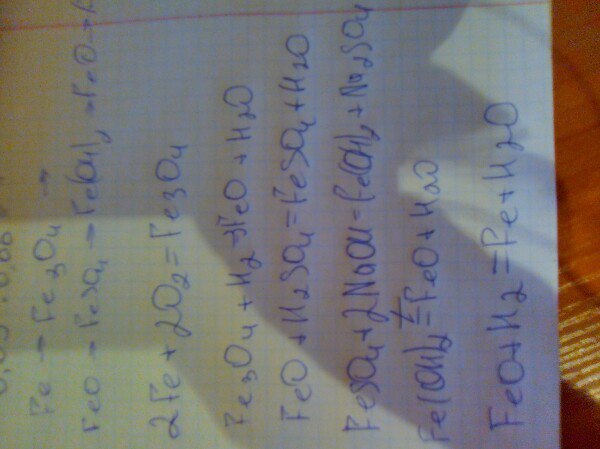 Fe → Fe3O4 →
FeO → FeSO4 → Fe(OH)2 → FeO →
2Fe + 2O2 = Fe3O4
Fe3O4 + H2 = 3FeO + H2O
FeO + H2SO4 = FeSO4 + H2O
FeSO4 + 2NaOH = Fe(OH)2 + Na2SO4
Fe(OH)2 t= FeO + H2O
FeO + H2 = Fe + H2O